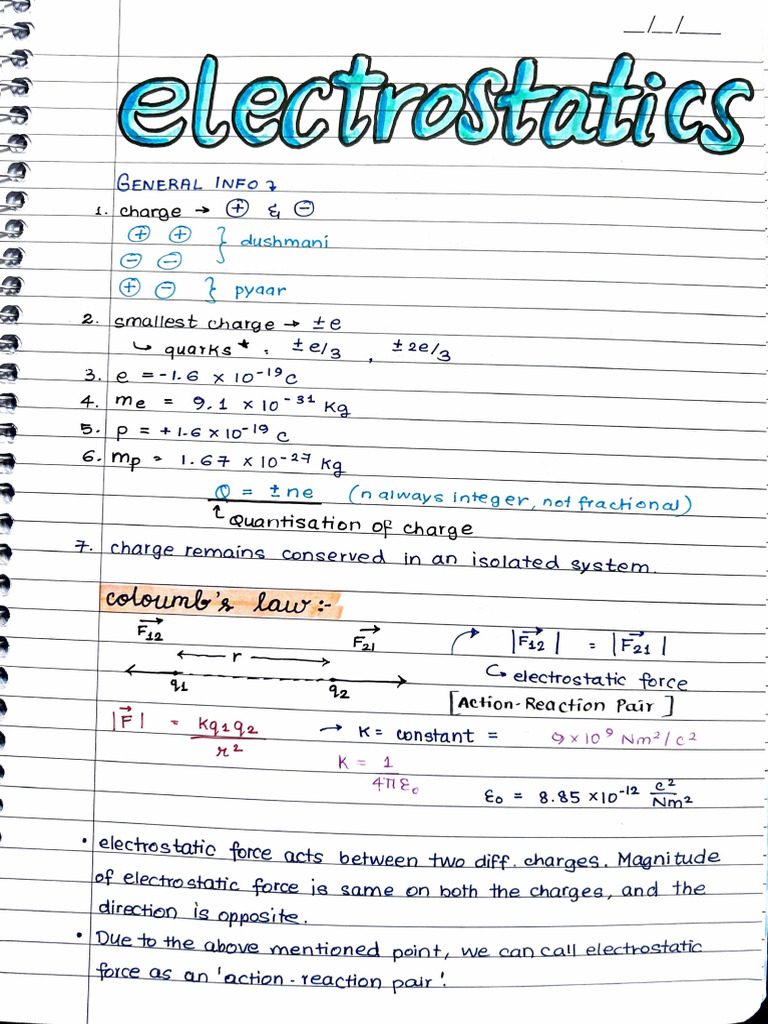 __/__/___
electrostatics
GENERAL INFO ↴
1. charge → ⊕ & ⊖
⊕ ⊕ } dushmani
⊖ ⊖
⊕ ⊖ } pyaar
2. smallest charge → ±e
↳ quarks* : ±e/3 , ±2e/3
3. e = -1.6 × 10⁻¹⁹C
4. me = 9.1 × 10⁻³¹ Kg
5. p = +1.6 × 10⁻¹⁹ C
6. mp = 1.67 × 10⁻²⁷ kg
Q = ±ne (n always integer, not fractional)
↑ Quantisation of charge
7. charge remains conserved in an isolated system.
coloumb's law :-
F₁₂ F₂₁ |F₁₂| = |F₂₁|
← r →
↪ electrostatic force
q1 q2
[Action-Reaction Pair]
|F| = Kq1q2/r² → K = constant = 9 × 10⁹ Nm²/c²
K = 1/4πε₀
ε₀ = 8.85 × 10⁻¹² c²/Nm²
• electrostatic force acts between two diff. charges. Magnitude
of electrostatic force is same on both the charges, and the
direction is opposite.
• Due to the above mentioned point, we can call electrostatic
force as an 'action-reaction pair'.